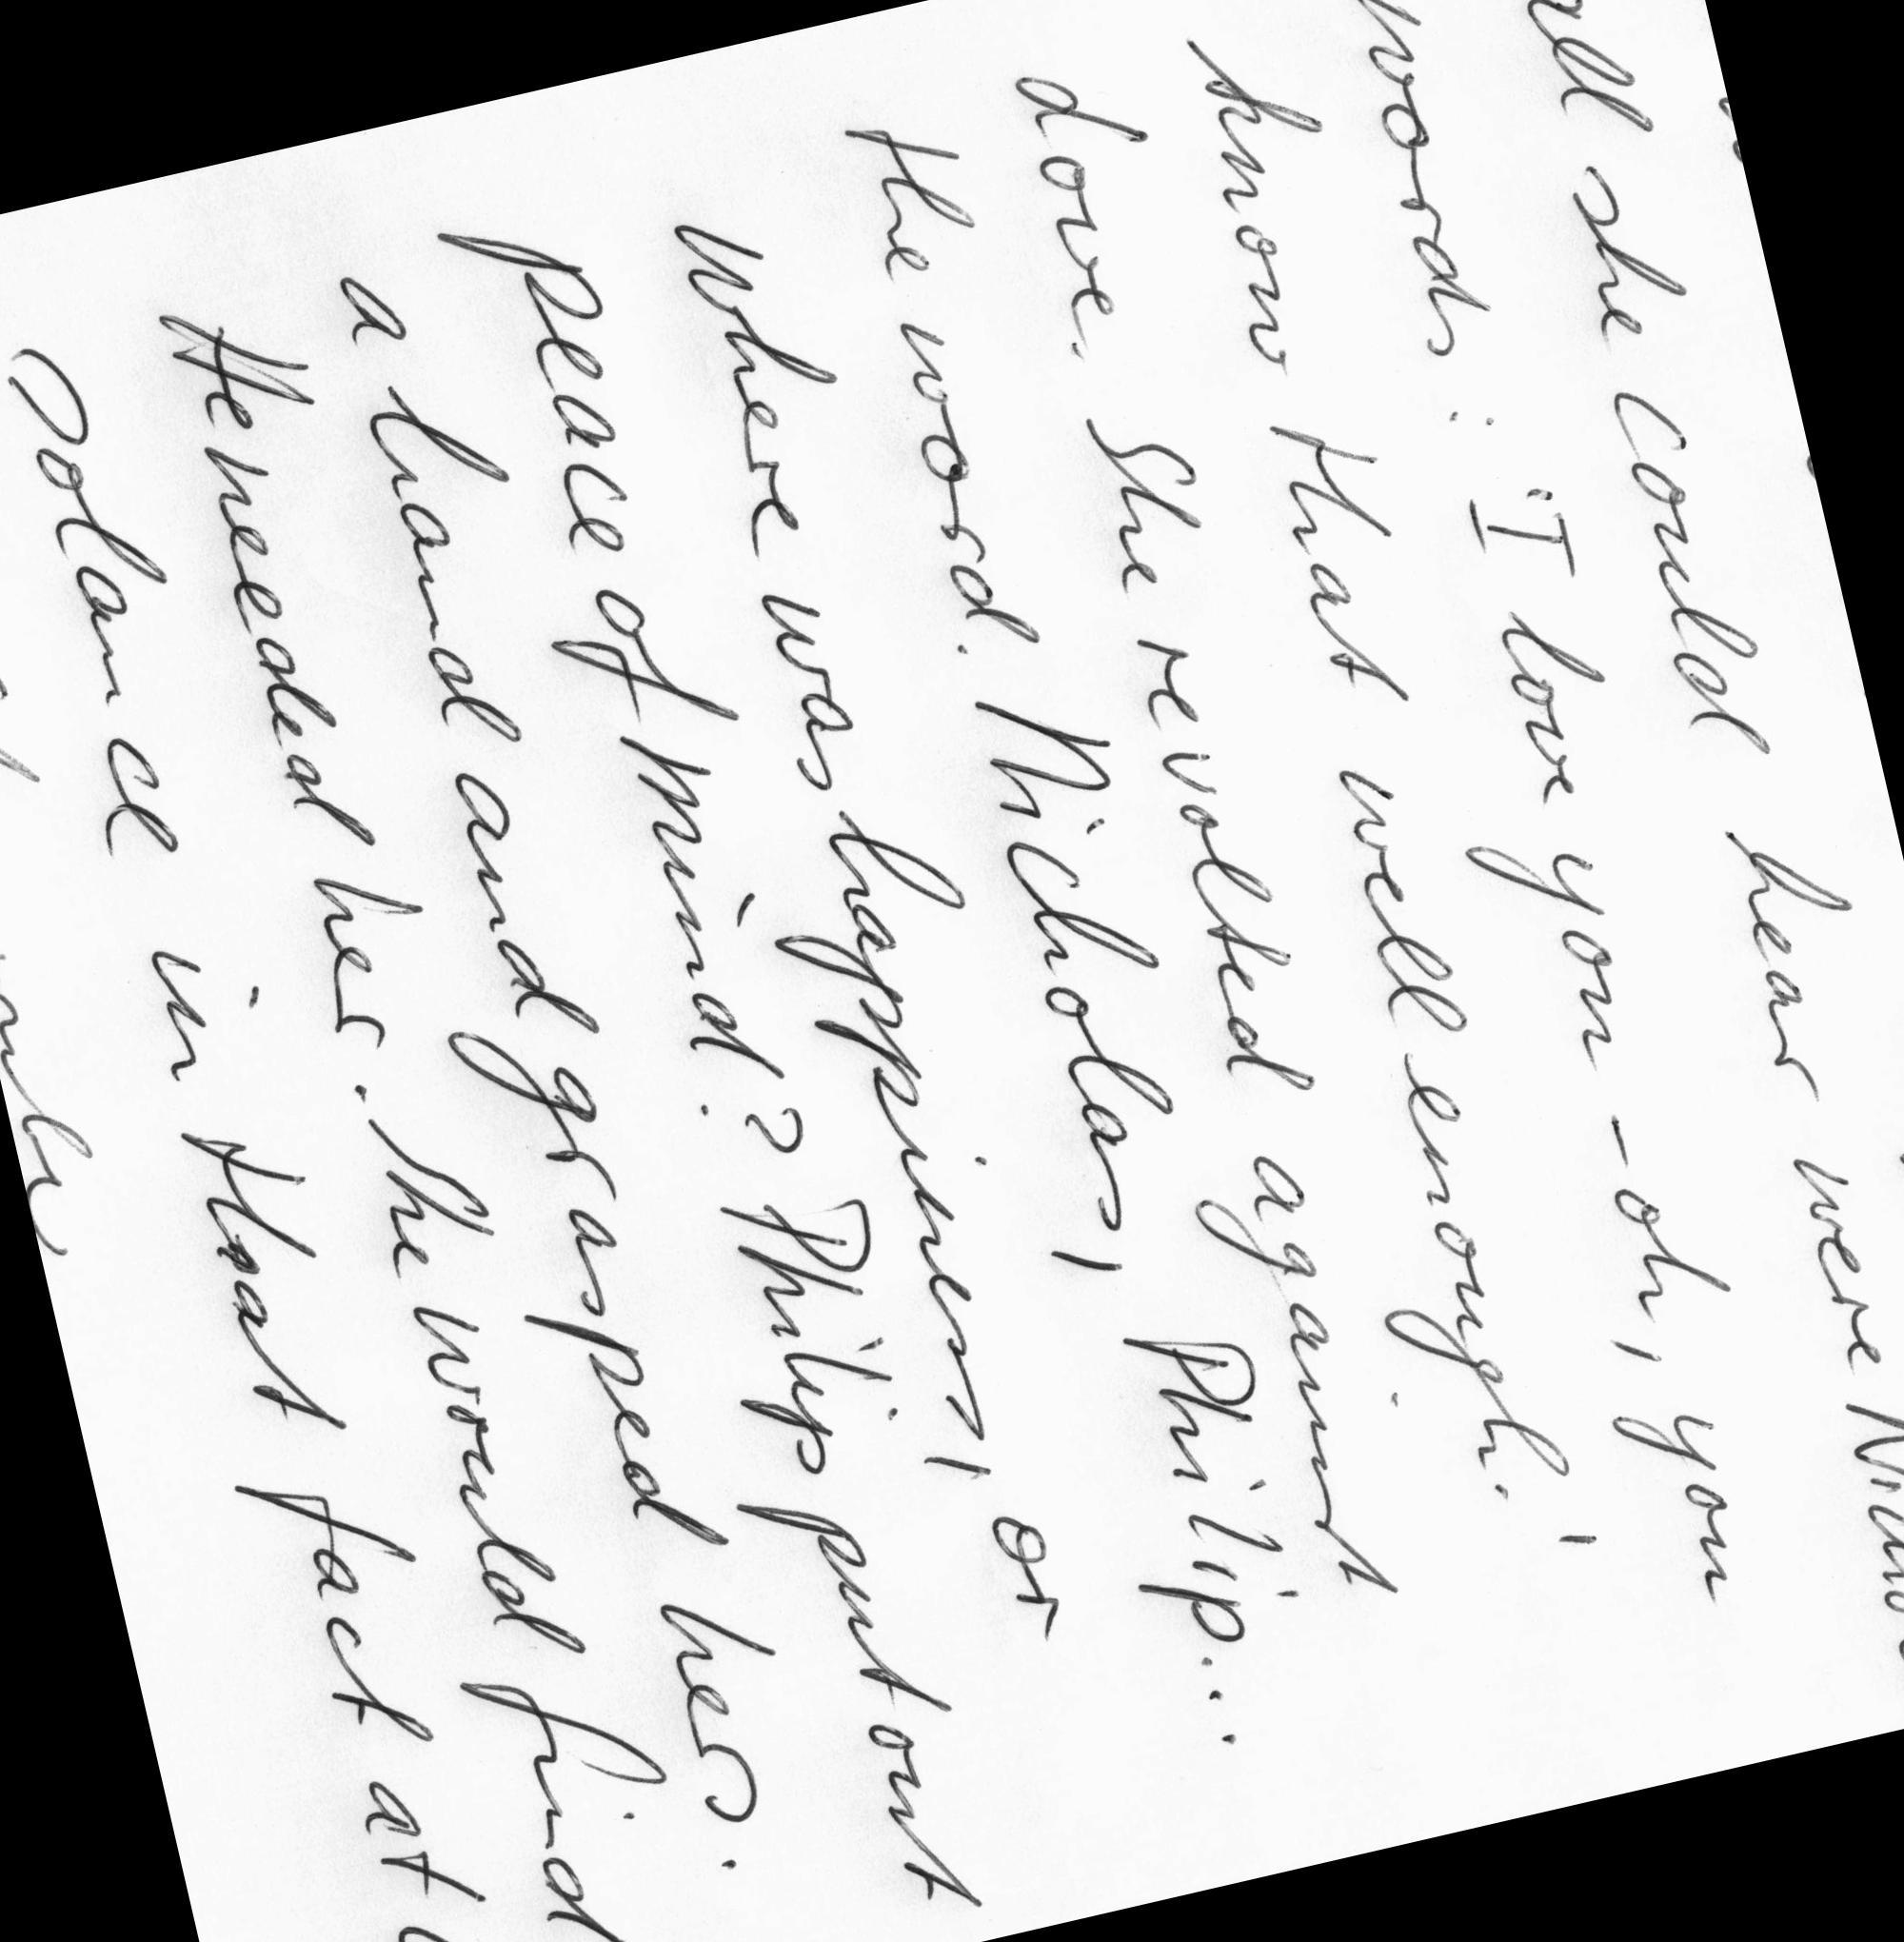 all she could hear were
words: 'I love you - oh, you
know that well enough.'
love. She revolted against
the word. Nicholas, Philip...
Where was happiness, or
peace of mind? Philip put out
a hand and grasped her.
He needed her. She would find
solance in that fact at